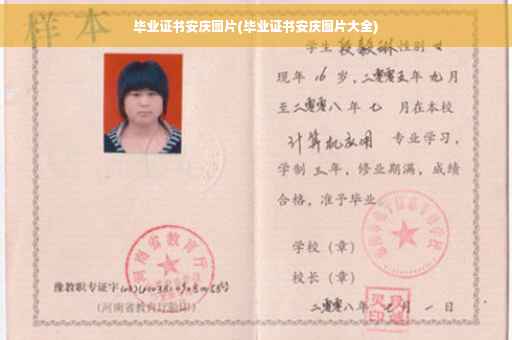 毕业证书安庆图片(毕业证书安庆图片大全)
样本
学生段毅琳性别女
现年16岁,二零零五年九月
至二零零八年七月在本校
计算机应用 专业学习,
学制三年,修业期满,成绩
合格,准予毕业。
学校(章)
校长(章)
二零零八年七月一日
河南省教育厅
豫教职专证字
(河南省教育厅验印)